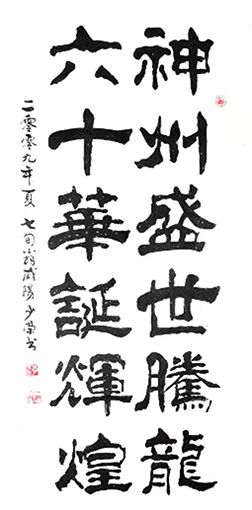 神州盛世騰龍
六十華誕輝煌
二零零九年夏 七旬翁咸陽少榮书